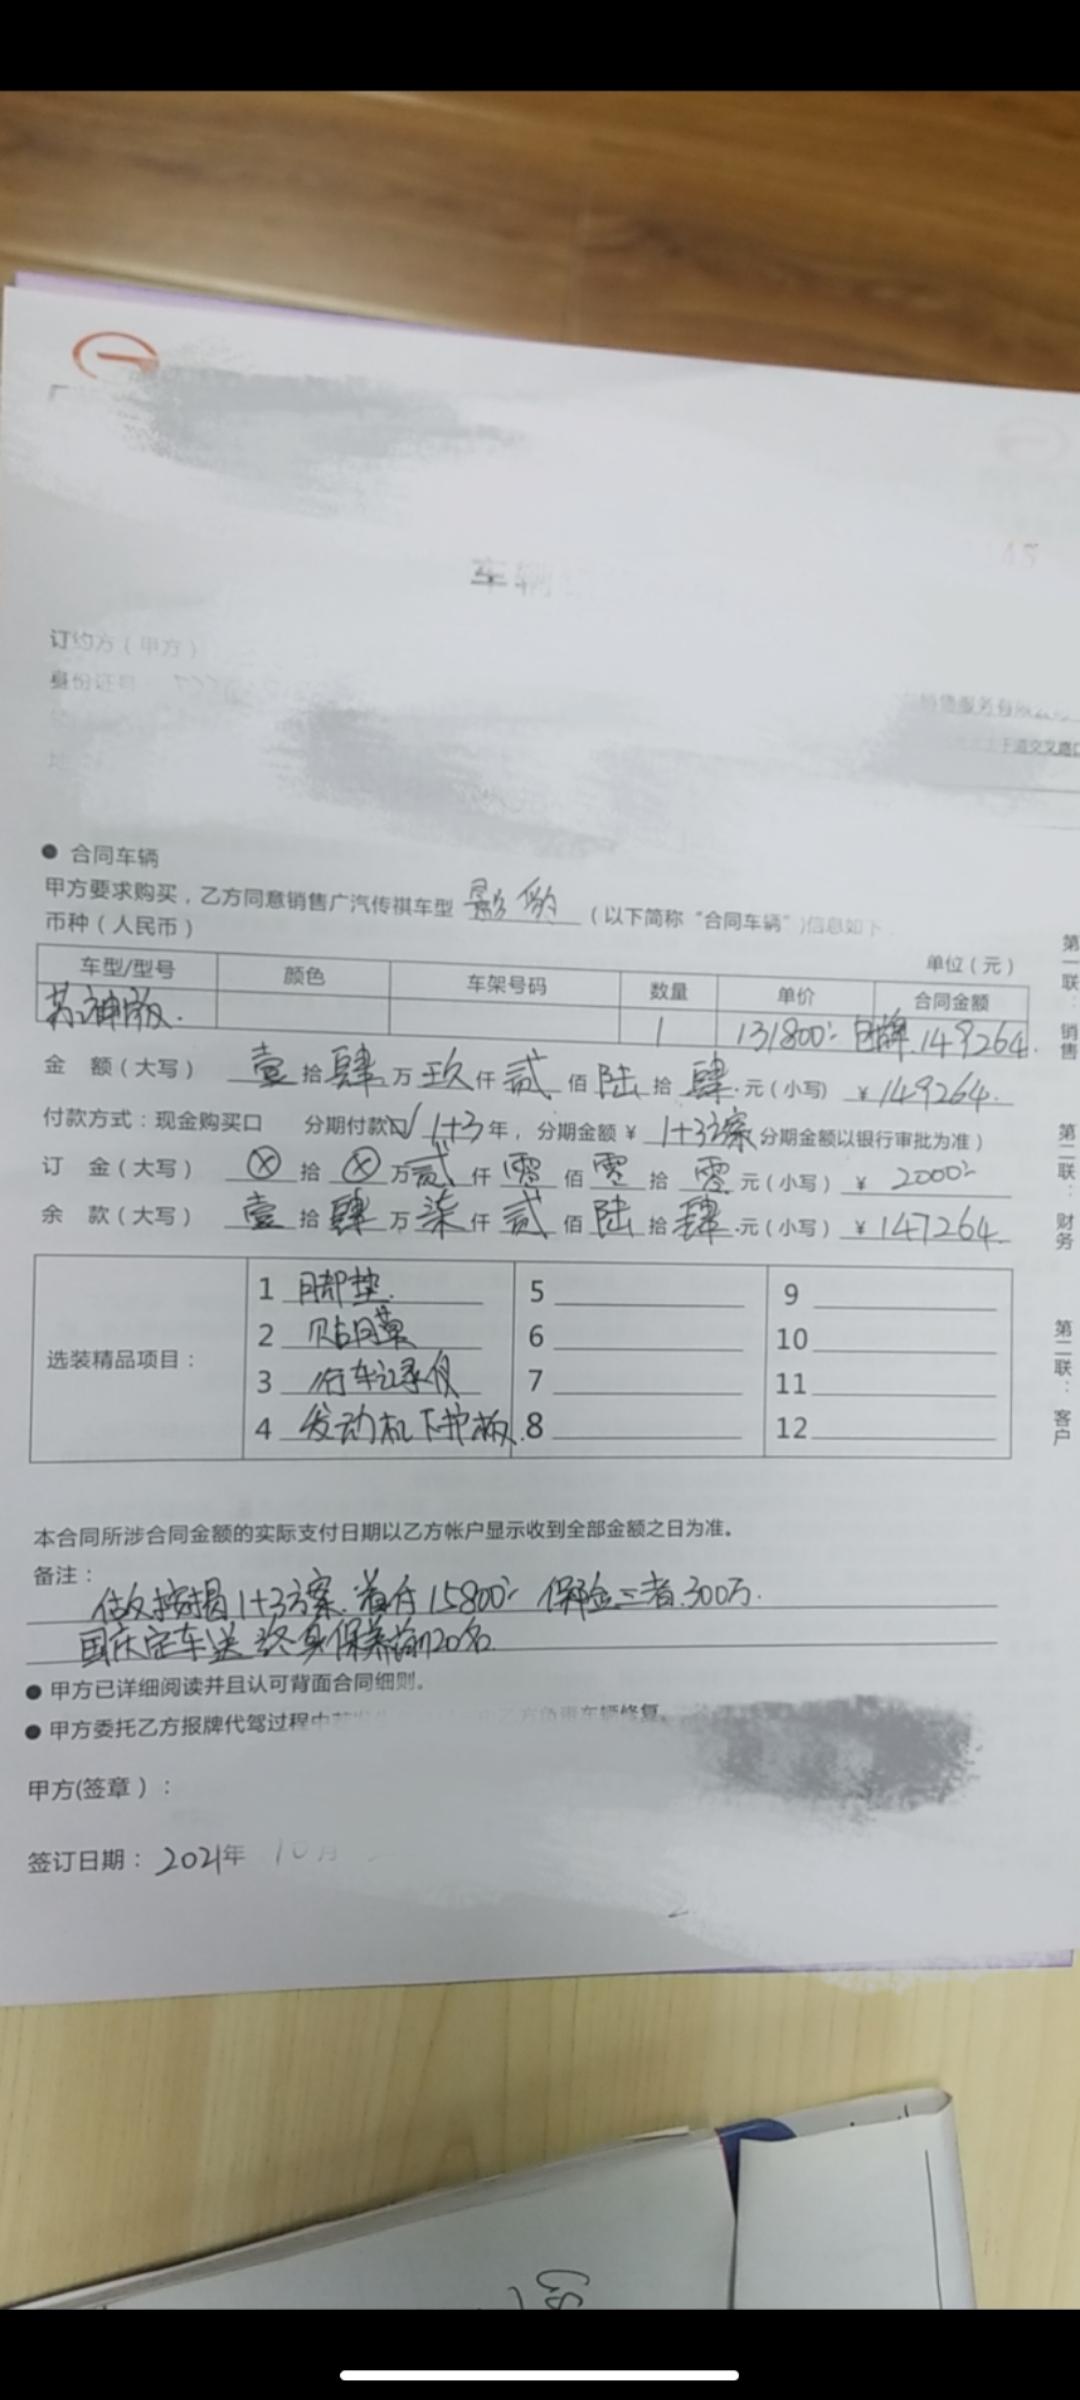 车辆
订约方（甲方）
身份证号
销售服务有限公司
下道交叉路口
● 合同车辆
甲方要求购买，乙方同意销售广汽传祺车型 影豹 （以下简称“合同车辆”)信息如下
币种（人民币）
单位（元）
车型/型号 颜色 车架号码 数量 单价 合同金额
1 131800 149264.
金 额（大写） 壹拾肆万玖仟贰佰陆拾肆.元(小写) ¥149264.
付款方式：现金购买口 分期付款口√ 1+3年，分期金额¥ 1+3方案 分期金额以银行审批为准）
订 金（大写） ⊗拾⊗万贰仟零佰零拾零元(小写) ¥ 2000
余 款（大写） 壹拾肆万柒仟贰佰陆拾肆.元(小写) ¥147264.
选装精品项目：
1 脚垫.
2 贴膜
3 行车记录仪
4 发动机下护板.
5
6
7
8
9
10
11
12
本合同所涉合同金额的实际支付日期以乙方帐户显示收到全部金额之日为准。
备注：
做按揭1+3方案.首付15800 保险三者.300万.
国庆定车送终身保养前20名.
● 甲方已详细阅读并且认可背面合同细则。
● 甲方委托乙方报牌代驾过程中 乙方负责车辆修复。
甲方(签章）：
签订日期：2021年 10月
第一联：销售
第二联：财务
第三联：客户